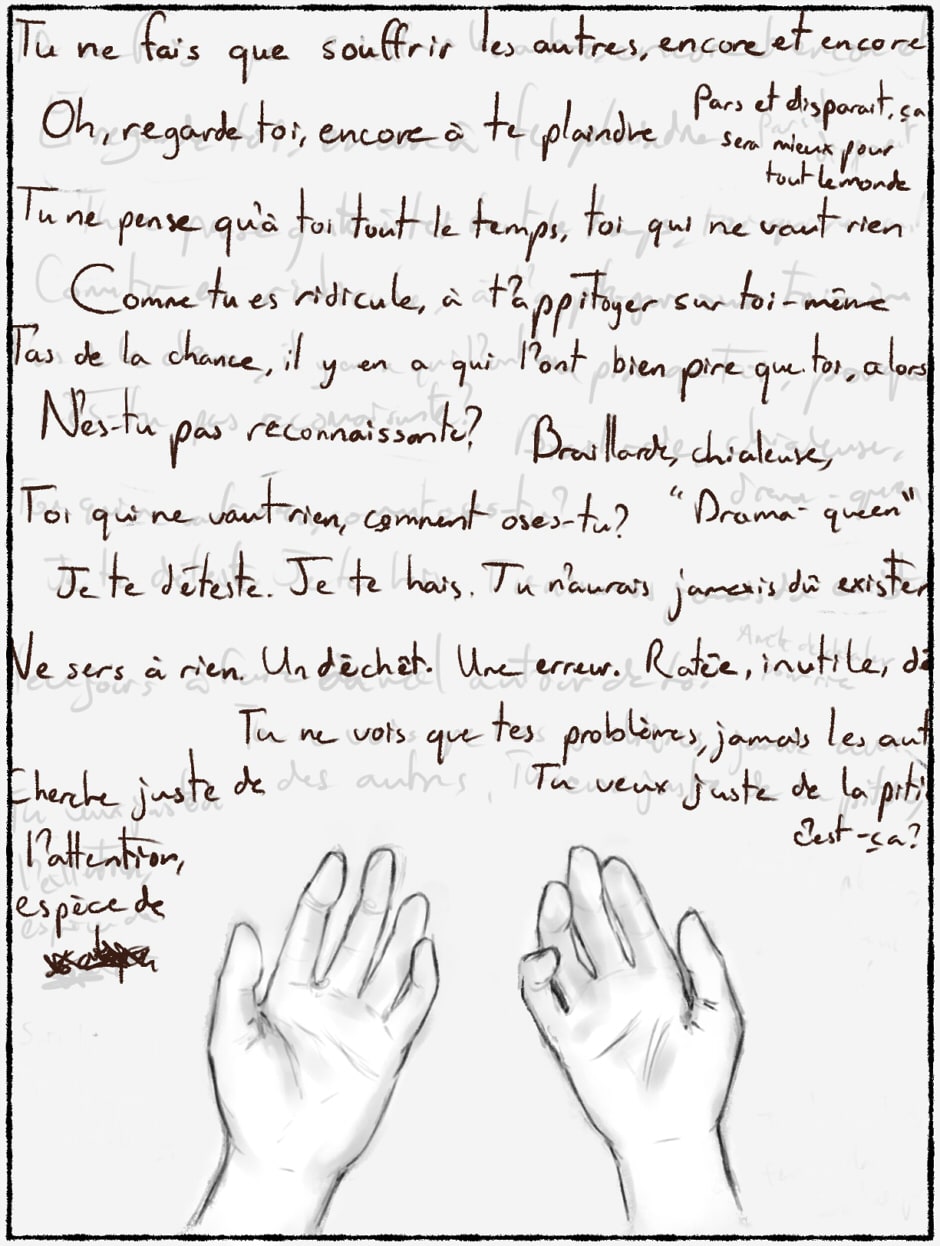 Tu ne fais que souffrir les autres, encore et encore
Oh, regarde toi, encore à te plaindre
Pars et disparait, ça
sera mieux pour
tout le monde
Tu ne pense qu'à toi tout le temps, toi qui ne vaut rien
Comme tu es ridicule, à t'appitoyer sur toi-même
T'as de la chance, il y en a qui l'ont bien pire que toi, alors
N'es-tu pas reconnaissante?
Braillarde, chialeuse,
Toi qui ne vaut rien, comment oses-tu?
"Drama-queen"
Je te déteste. Je te hais. Tu n'aurais jamais dû exister
Ne sers à rien. Un déchêt. Une erreur. Ratée, inutile, dé
Tu ne vois que tes problèmes, jamais les aut
Cherche juste de
Tu veux juste de la piti
c'est-ça?
l'attention,
espèce de